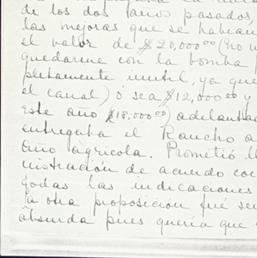 de los dos años pasados,
las mejoras que se habían
el valor de $20,000.00 (no
quedarme con la bomba
pletamente inutil, ya que
el canal) ó sea $12,000.00 y
este año $18,000.00 adelanta
entregaba el Rancho a
tino agricola. Prometió
nistración de acuerdo con
todas las indicaciones
La otra proposición fué
absurda pues quería que